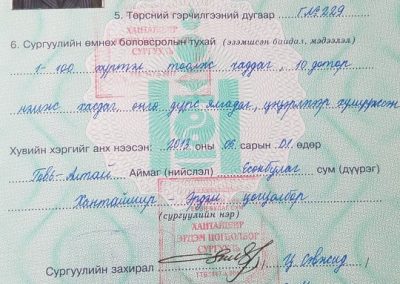 5. Төрсний гэрчилгээний дугаар ГЛ№229
6. Сургуулийн өмнөх боловсролын тухай (эзэмшсэн байдал, мэдээлэл)
1-100 хүртэл тоолж чаддаг, 10 дотор
нэмж хасдаг, өнгө дүрс ялгадаг,
Хувийн хэргийг анх нээсэн: 2013 оны 06 сарын 01 өдөр
Говь-Алтай Аймаг (нийслэл) Есөнбулаг сум (дүүрэг)
Хантайшир-Эрдэм цогцолбор
(сургуулийн нэр)
ХАНТАЙШИР
ЭРДЭМ ЦОГЦОЛБОР
СУРГУУЛЬ
Сургуулийн захирал Ц